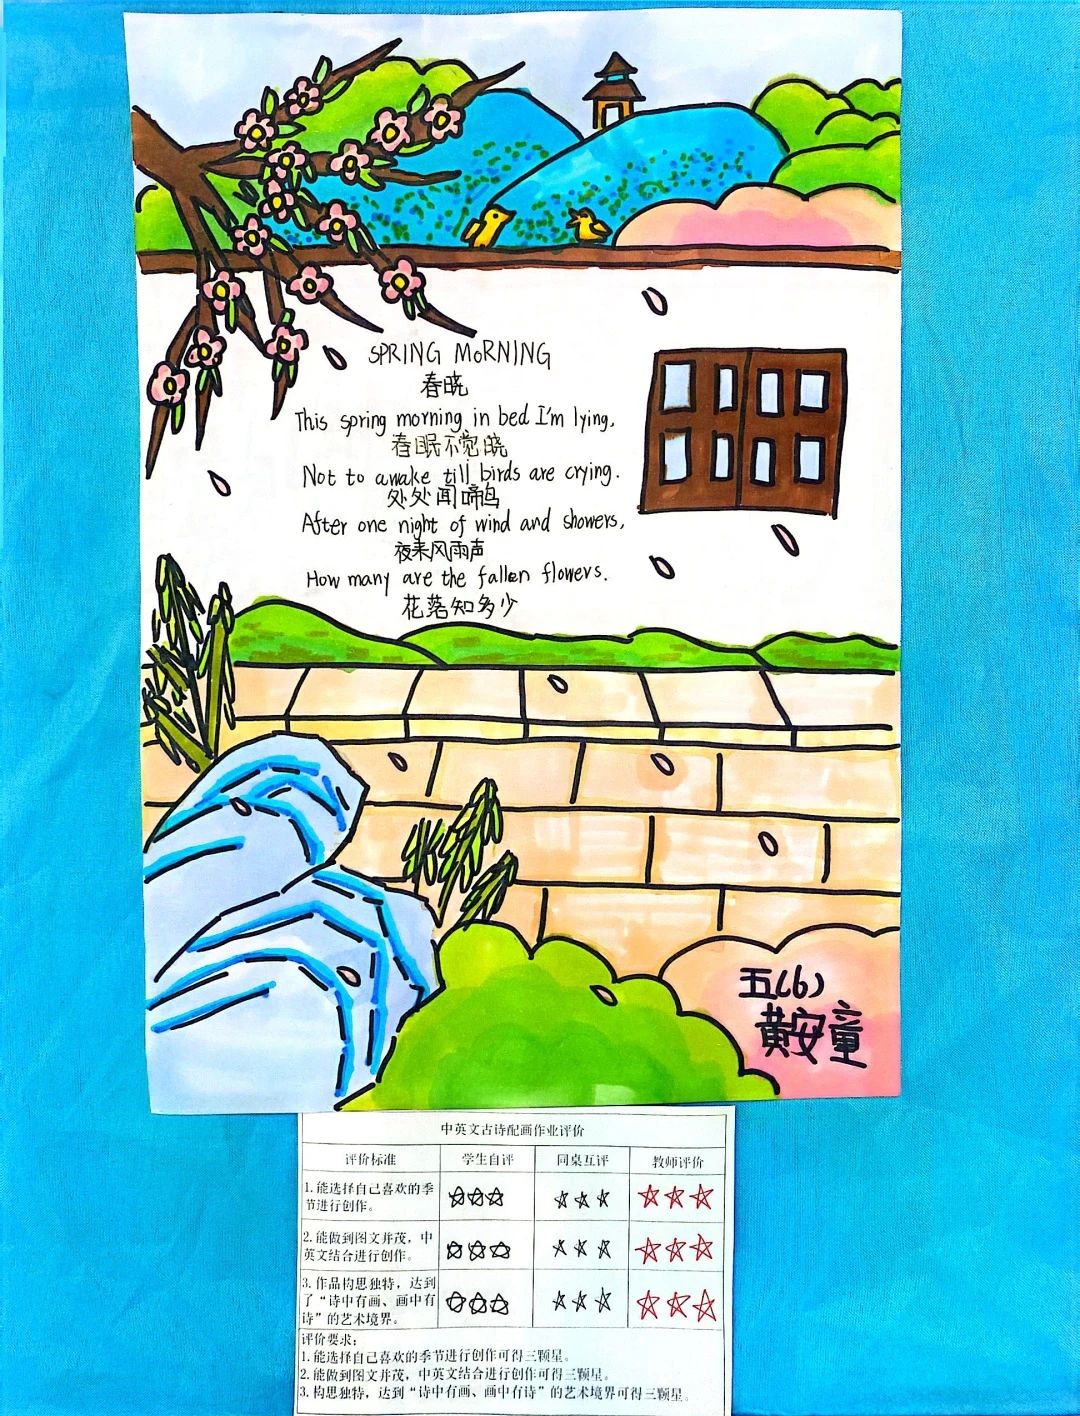 SPRING MORNING
春晓
This spring morning in bed I'm lying,
春眠不觉晓
Not to awake till birds are crying.
处处闻啼鸟
After one night of wind and showers,
夜来风雨声
How many are the fallen flowers.
花落知多少
五(6)
黄安童
中英文古诗配画作业评价
评价标准 学生自评 同桌互评 教师评价
1.能选择自己喜欢的季
节进行创作。
2.能做到图文并茂，中
英文结合进行创作。
3.作品构思独特，达到
了“诗中有画、画中有
诗”的艺术境界。
评价要求：
1.能选择自己喜欢的季节进行创作可得三颗星。
2.能做到图文并茂，中英文结合进行创作可得三颗星。
3.构思独特，达到“诗中有画、画中有诗”的艺术境界可得三颗星。